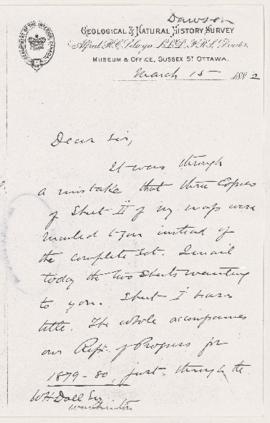 Dawson
GEOLOGICAL & NATURAL HISTORY SURVEY
Alfred R. C. Selwyn L.L.D. F.R.S. Director.
MUSEUM & OFFICE, SUSSEX ST. OTTAWA.
March 15 1882
Dear Sir,
It was through
a mistake that three copies
of Sheet II of my maps were
mailed to you instead of
the complete set. I mail
today the two sheets wanting
to you. Sheet I bears
title. The whole accompanies
our Rept. of Progress for
1879-80 just through the
WH Dall Esq
Washington